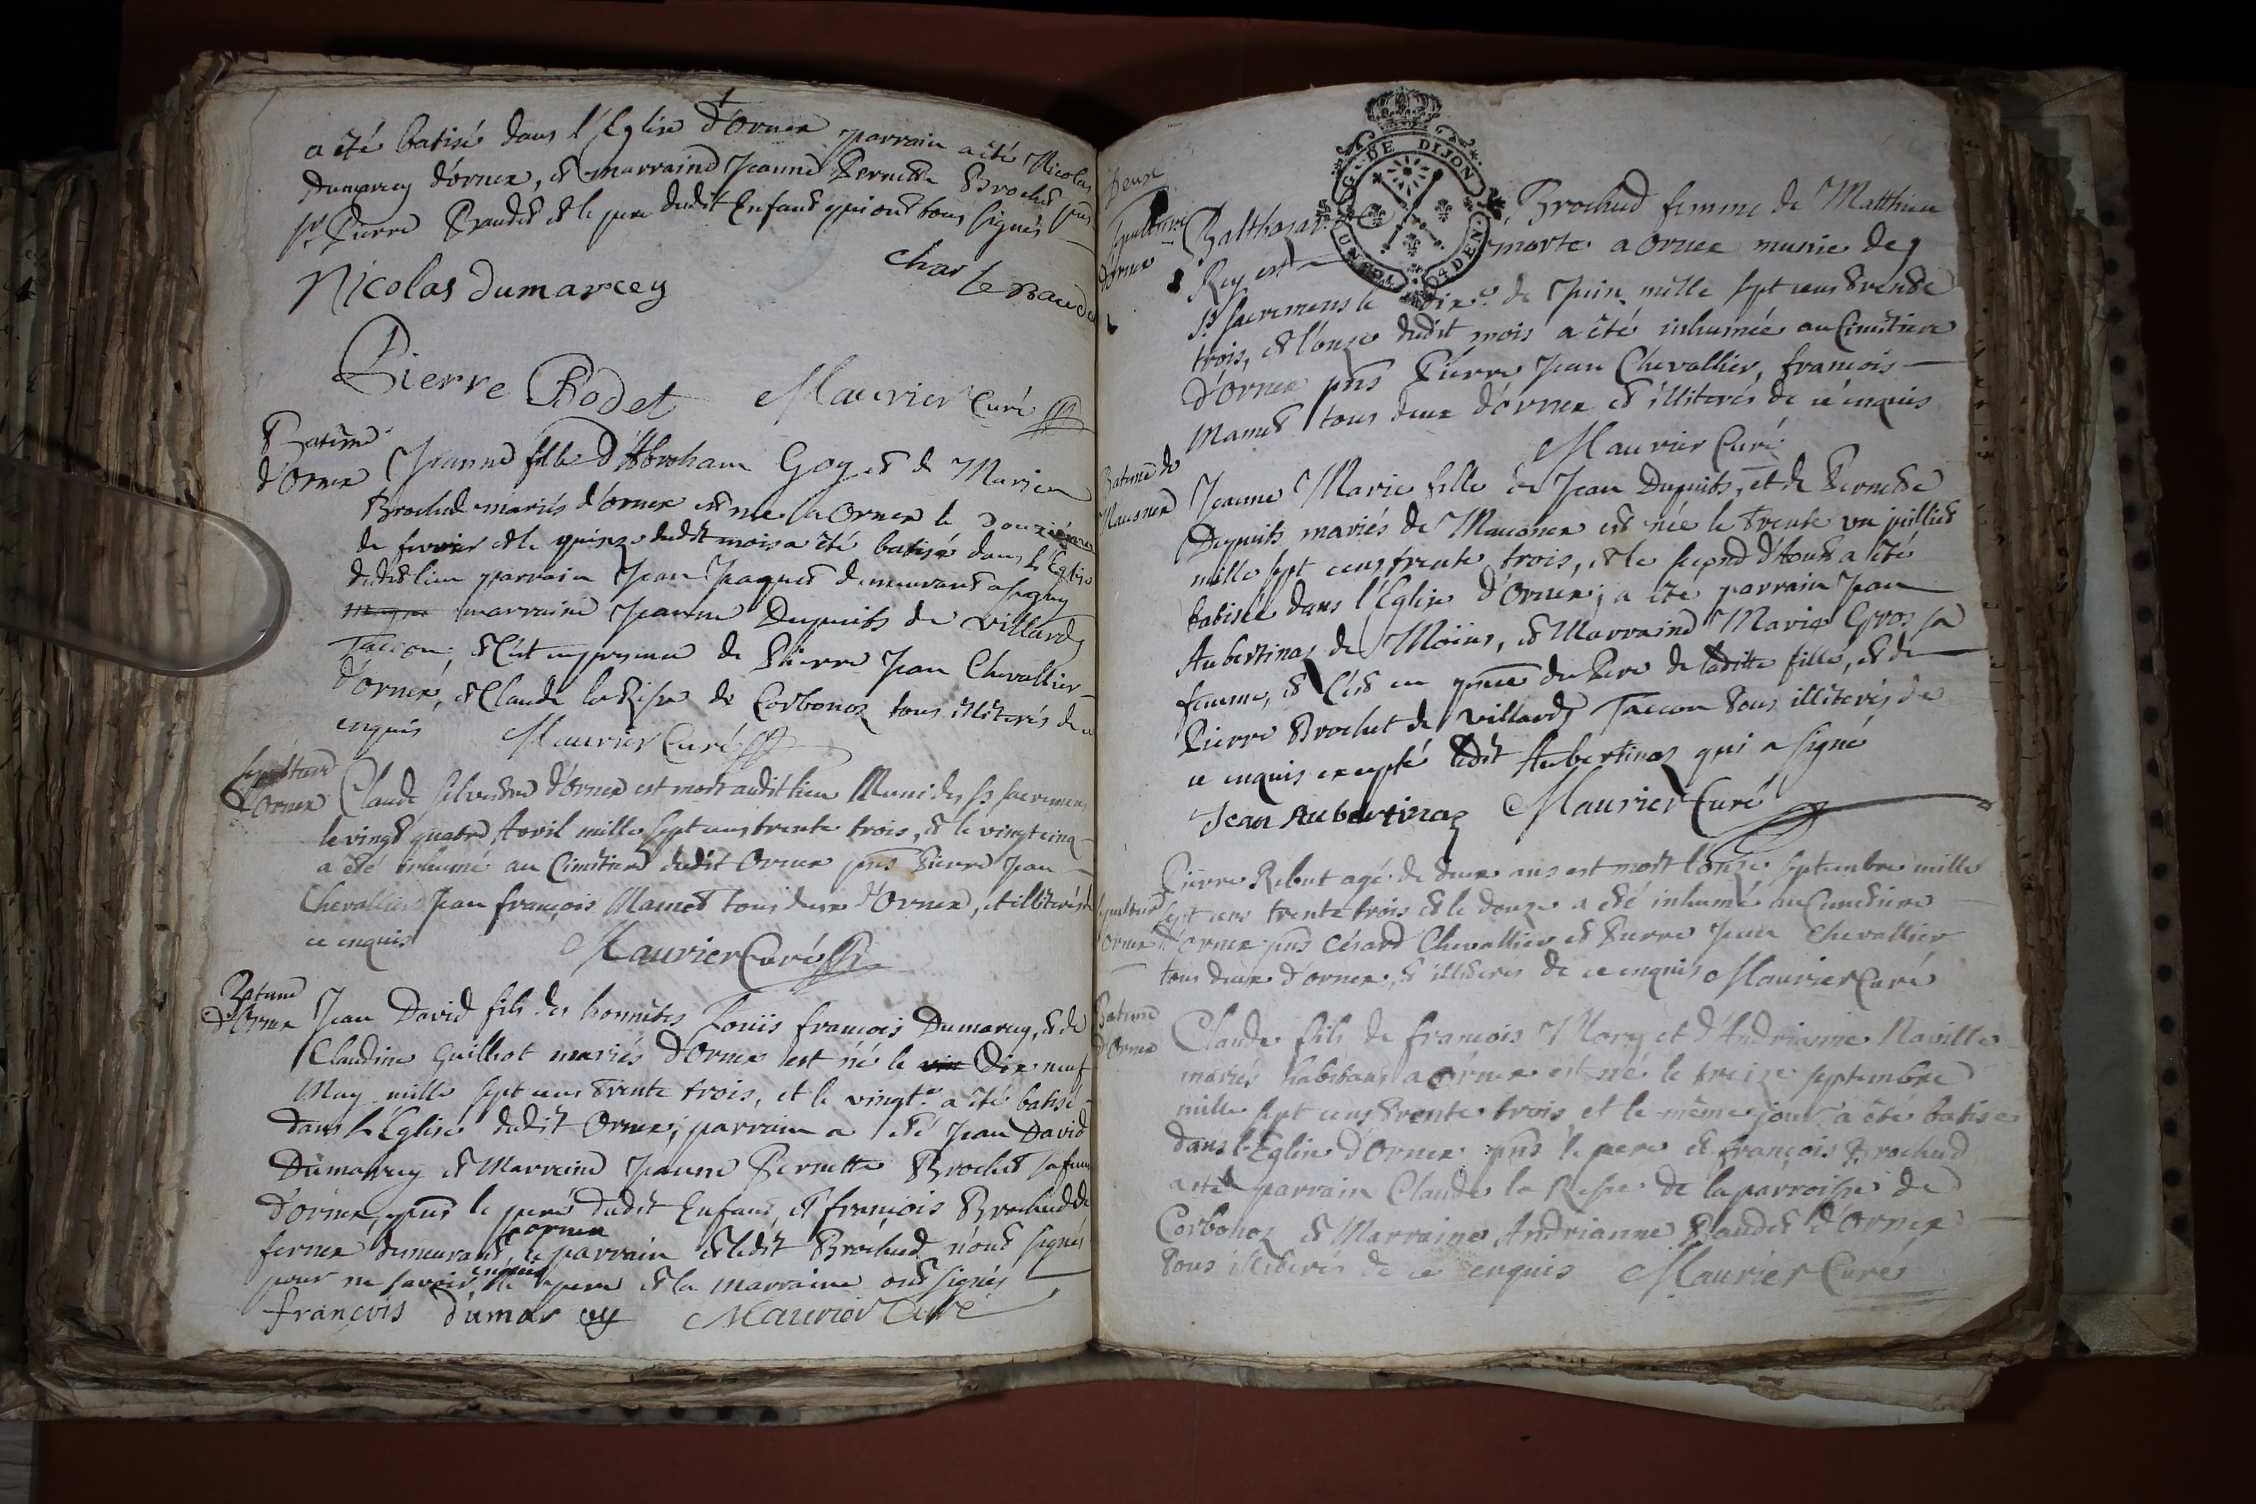 a été batisé dans l'Eglise d'Ornex parrain a été Nicolas
Dumarcey d'ornex, et marraine Jeanne Pernette Brochet pns
sr Pierre Baudet et le pere dudit Enfant qui ont tous signés
Nicolas Dumarcey
Charle Baudet
Pierre Bodet Maurier Curé
Batême
d'Ornex
Jeanne fille d'Abraham Goy et de
Brochud mariés d'ornex est née a Ornex le Douzième
de fevrier et le quinze dudit mois a été batisé dans l'Eglise
dudit lieu parrain Jean Jaquet demeurant a
marraine Jeanne Dupuits de villard
Taccon, et c'est en presence de Pierre Jean Chevallier
d'ornex, et Claude la Rispe de Corbonoz tous illiterés de ce
enquis Maurier Curé
Sepulture
d'Ornex
Claude Silvestre d'ornex est mort audit lieu Muni des Ss sacremens
le vingt quatre Avril mille sept cens trente trois, et le vingt cinq
a été inhumé au Cimêtiere dudit Ornex pns Pierre Jean
Chevallier Jean françois Mamet tous deux d'Ornex, et illiterés de
ce enquis Maurier Curé
Batême
d'Ornex
Jean David fils des honnêtes Louis françois Dumarcey, et de
Claudine Guilliot mariés d'Ornex est né le Dix neuf
May mille sept cens trente trois, et le vingt.e a été batisé
dans l'Eglise dudit Ornex; parrain a été Jean David
Dumarcey et Marraine Jeanne Pernette Brochet sa femme
d'ornex, pns le pere dudit Enfant et françois Brochud de
fernex demeurant a ornex, le parrain et ledit Brochud n'ont signés
pour ne savoir enquis, le pere et la marraine ont signés
françois dumarcey Maurier Curé
Sepulture
d'Ornex
Balthazar Brochud femme de Matthieu
Rey est morte a Ornex munie des
Ss sacremens le dix.e de Juin mille sept cens trente
trois, et l'onze dudit mois a été inhumée au Cimêtiere
d'Ornex pns Pierre Jean Chevallier, françois
Mamet tous deux d'ornex et illiterés de ce enquis
Maurier Curé
Batême de
Mauconex
Jeanne Marie fille de Jean Dupuits, et de Pernette
Dupuits mariés de Mauconex est née le trente un juillet
mille sept cens trente trois, et le second d'Aout a été
batisée dans l'Eglise d'Ornex; a été parrain Jean
Aubertinaz de Moins, et Marraine Marie Gros sa
femme, et c'est en pnce du Pere de laditte fille, et de
Pierre Brochet de Villard Taccon tous illiterés de
ce enquis excepté ledit Aubertinaz qui a signé
Jean Aubertinaz Maurier Curé
Sepulture
d'Ornex
Pierre Rebut agé de deux ans est mort l'onze septembre mille
sept cens trente trois et le douze a été inhumé au Cimêtiere
d'ornex pns Césard Chevallier et Pierre Jean Chevallier
tous deux d'ornex, et illiterés de ce enquis Maurier Curé
Batême
d'Ornex
Claude fils de françois Mory et d'Andrianne Naville
mariés habitans a Ornex est né le treize septembre
mille sept cens trente trois et le même jour a été batisé
dans l'Eglise d'Ornex pns le pere et françois Brochud
a été parrain Claude la Rispe de la parroisse de
Corbonoz et Marraine Andrianne Baudet d'Ornex
tous illiterés de ce enquis Maurier Curé
G. DE DIJON
4 DEN.